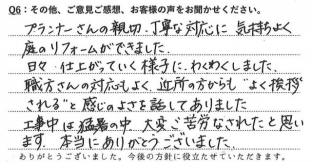 Q6：その他、ご意見ご感想、お客様の声をお聞かせください。
プランナーさんの親切、丁寧な対応に 気持ちよく
庭のリフォームができました。
日々 仕上がっていく様子に、わくわくしました。
職方さんの対応もよく、近所の方からも"よく挨拶
される"と感じのよさを話してありました
工事中は猛暑の中、大変ご苦労なされたと思い
ます。本当にありがとうございました
ありがとうございました。今後の方針に役立たせていただきます。